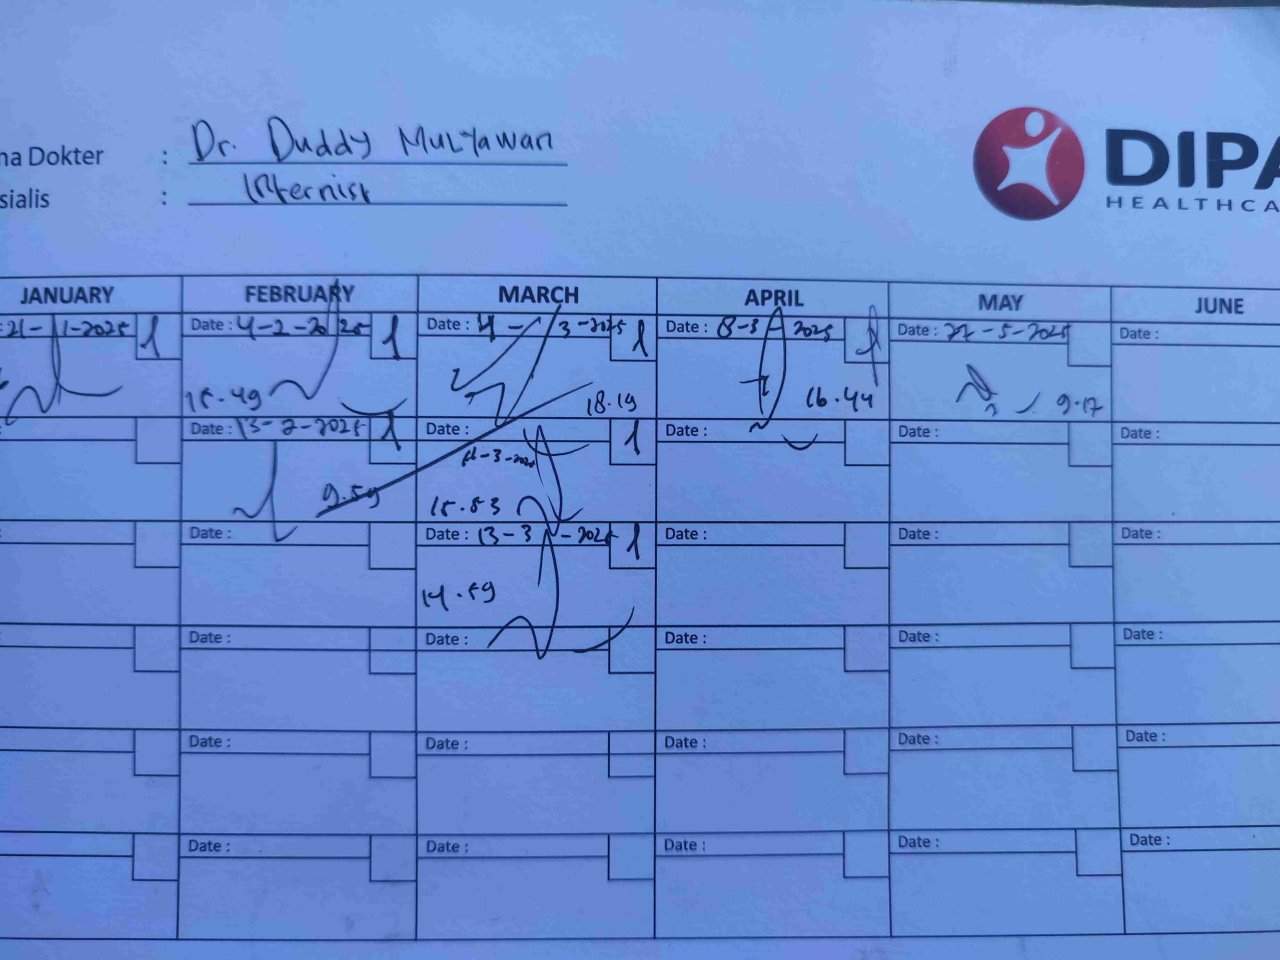 na Dokter : Dr. Duddy Mulyawan
sialis : Internist
DIPA
HEALTHCA
JANUARY FEBRUARY MARCH APRIL MAY JUNE
21-1-2025 1 Date : 4-2-2025 1 Date : 4-3-2025 1 Date : 8-3-2025 1 Date : 27-5-2025 Date :
15.49 18.19 16.44 9.17
Date : 13-2-2025 1 Date : 1 Date : Date : Date :
9.59 15.53
Date : Date : 13-3-2025 1 Date : Date : Date :
14.59
Date : Date : Date : Date : Date :
Date : Date : Date : Date : Date :
Date : Date : Date : Date : Date :